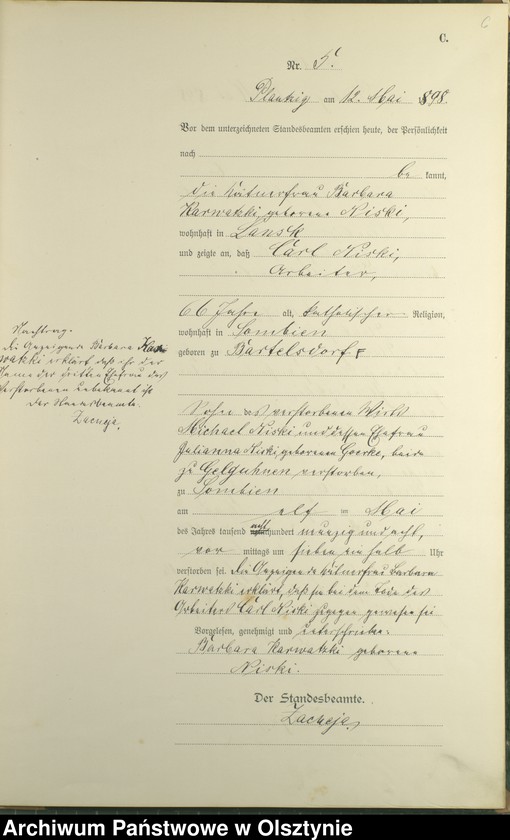 6
C.
Nr. 5.
Plautzig am 12. Mai 1898.
Vor dem unterzeichneten Standesbeamten erschien heute, der Persönlichkeit
nach
be kannt,
die Kätnerfrau Barbara
Karwatzki geborene Niski,
wohnhaft in Lansk
und zeigte an, daß Carl Niski,
Arbeiter,
66 Jahre alt, katholischer Religion,
wohnhaft in Sombien
geboren zu Bartelsdorf
Sohn des verstorbenen Wirts
Michael Niski und dessen Ehefrau
Julianna Niski geborenen Goerke, beide
zu Gelguhnen verstorben,
zu Sombien
am elf ten Mai
des Jahres tausend acht hundert neunzig und acht,
vor mittags um sieben ein halb Uhr
verstorben sei. Die Anzeigende Kätnerfrau Barbara
Karwatzki erklärt, daß sie bei dem Tode des
Arbeiters Carl Niski zugegen gewesen sei
Vorgelesen, genehmigt und unterschrieben
Barbara Karwatzki geborene
Niski.
Der Standesbeamte.
Zacheja
Nachtrag.
Die Anzeigende Barbara Kar
watzki erklärt daß ihr der
Name der dritten Ehefrau des
Verstorbenen unbekannt ist
Der Standesbeamte.
Zacheja.
Archiwum Państwowe w Olsztynie